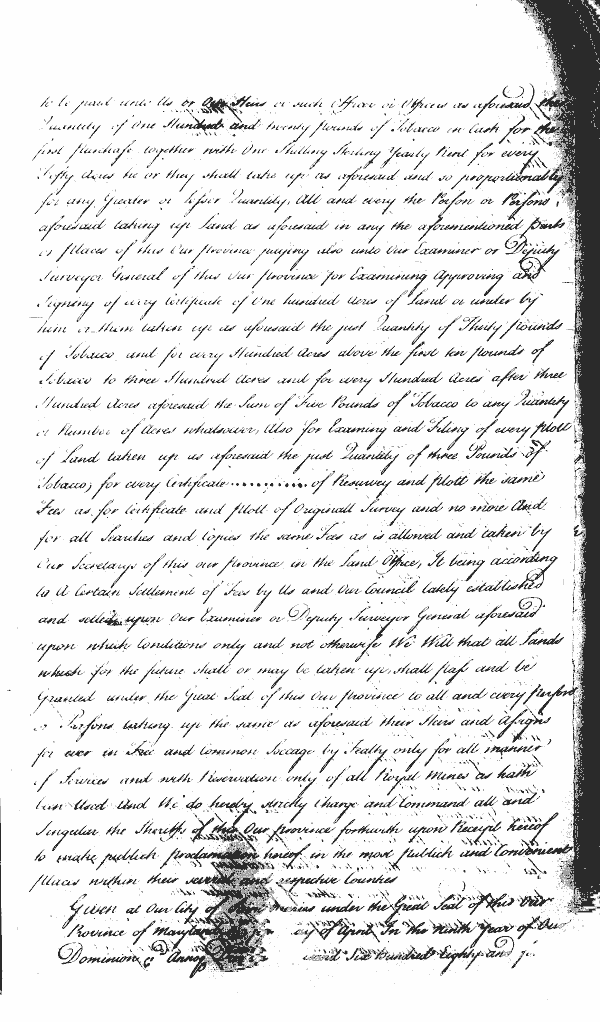 to be paid unto Us or Our Heirs or such Officer or Officers as aforesaid the
Quantity of One Hundred and twenty pounds of Tobacco in Cask for the
first purchase together with One Shilling Sterling Yearly Rent for every
Fifty Acres he or they shall take up as aforesaid and so proportionably
for any Greater or lesser Quantity, All and every the Person or Persons
aforesaid taking up Land as aforesaid in any the aforementioned parts
or places of this Our province paying also unto Our Examiner or Deputy
Surveyor General of this Our province for Examining Approving and
Signing of every Certificate of One hundred Acres of Land or under by
him or them taken up as aforesaid the just Quantity of Thirty pounds
of Tobacco, and for every Hundred Acres above the first ten pounds of
Tobacco to three Hundred Acres and for every Hundred Acres after three
Hundred Acres aforesaid the Sum of Five Pounds of Tobacco to any Quantity
or Number of Acres whatsoever, Also for Examing and Filing of every plott
of Land taken up as aforesaid the just Quantity of three Pounds of
Tobacco, for every Certificate ........... of Resurvey and plott the same
Fees as for Certificate and plott of Originall Survey and no more And
for all Searches and Copies the same Fees as is allowed and taken by
Our Secretarys of this our province in the Land Office, It being according
to A Certain Settlement of Fees by Us and Our Council lately established
and settled upon Our Examiner or Deputy Surveyor General aforesaid
upon which Conditions only and not otherwise We Will that all Lands
which for the future shall or may be taken up, shall pass and be
Granted under the Great Seal of this Our province to all and every person
or Persons taking up the same as aforesaid their Heirs and Assigns
for ever in Free and Common Soccage by Fealty only for all manner
of Services and with Reservation only of all Royal Mines as hath
been Used And We do hereby strictly charge and Command all and
Singular the Sheriffs of this Our province forthwith upon Receipt hereof
to make publick proclamation hereof in the most publick and Convenient
places within their several and respective Counties
Given at Our City of Maries under the Great Seal of this Our
Province of Maryland day of April In the Ninth Year of Our
Dominion &c Annoq Six Hundred Eighty and